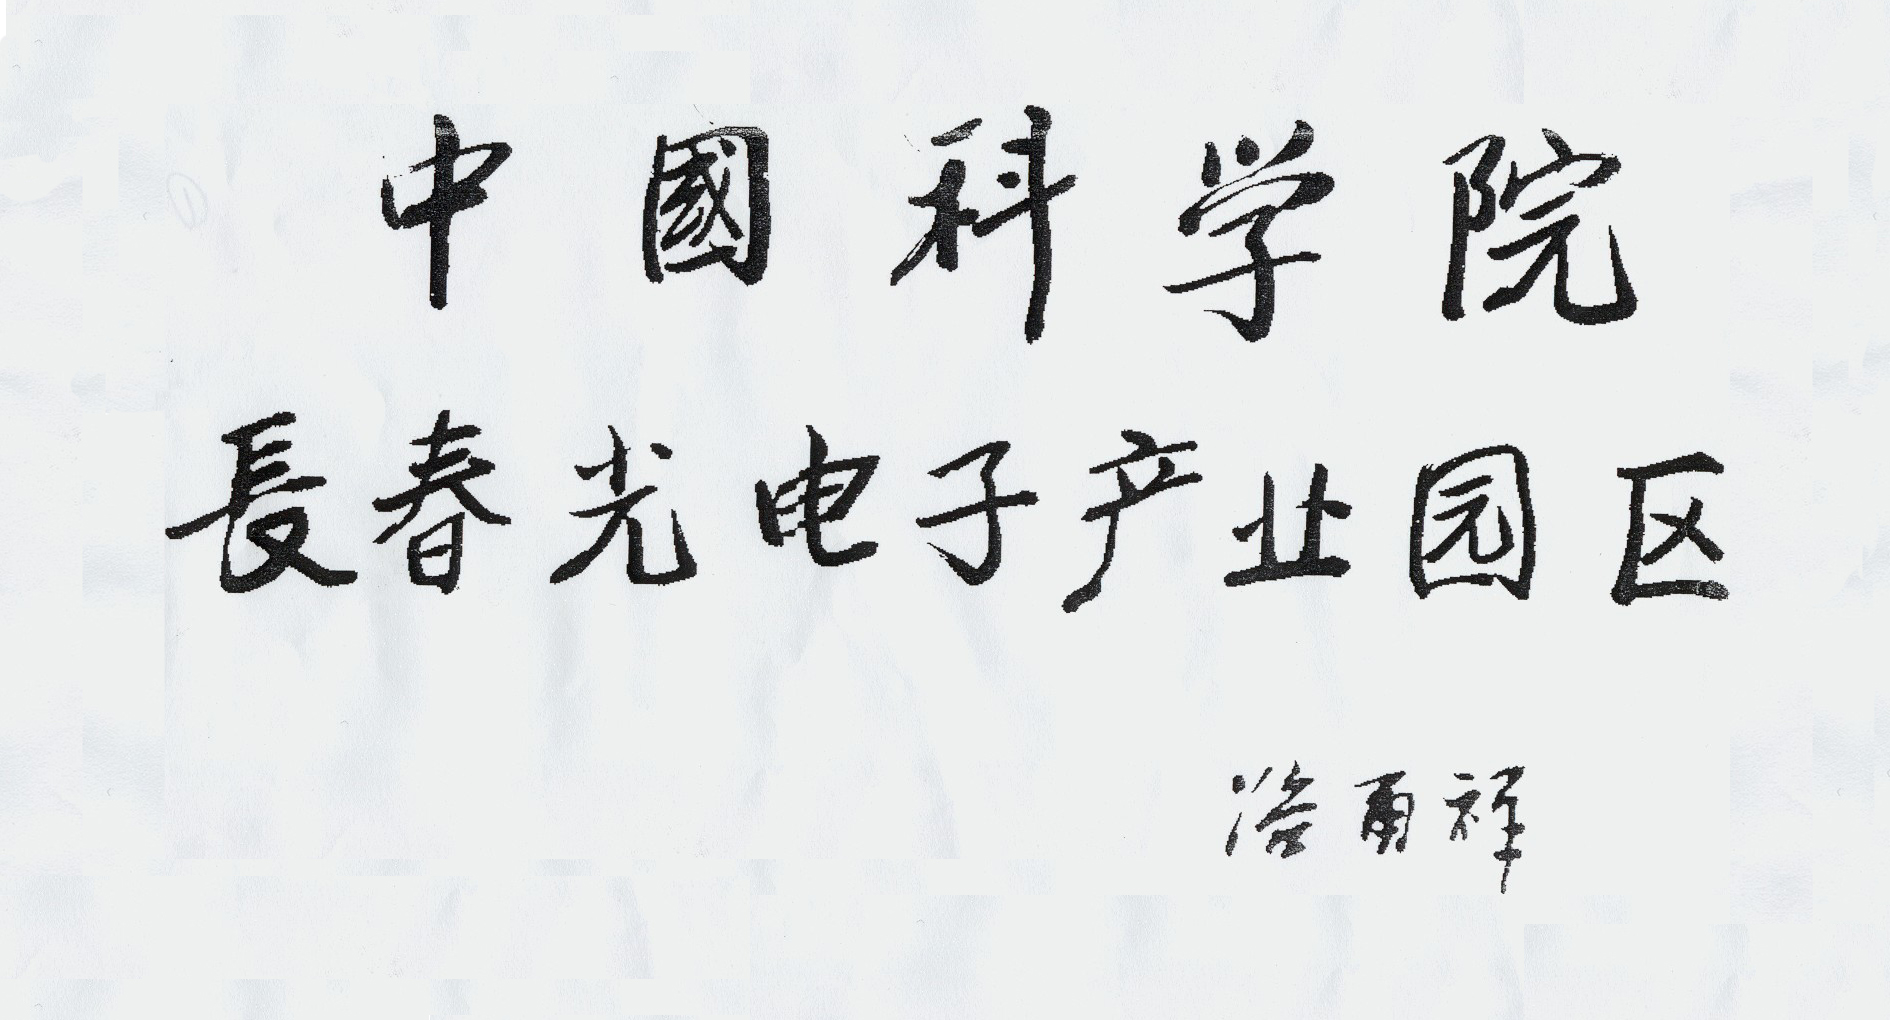 中國科学院
長春光电子产业园区
路甬祥